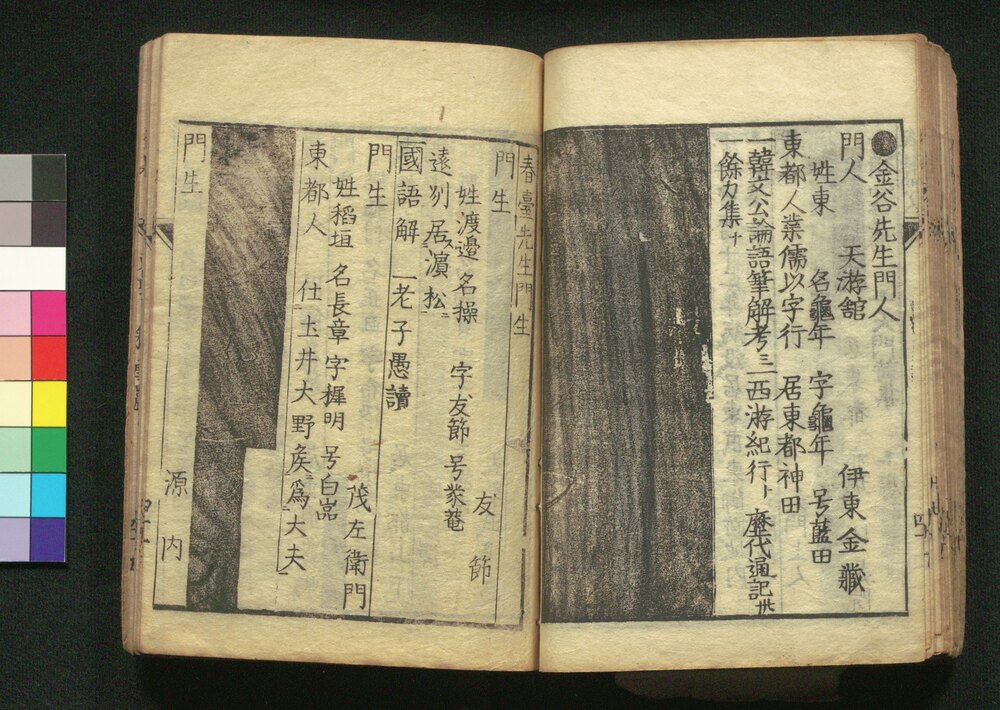 金谷先生門人
門人 天游舘 伊東金藏
姓東 名龜年 字龜年 号藍田
東都人業儒以字行 居東都神田
一韓文公論語筆解考三 一西游紀行 歴代通記丗
一餘力集十
春臺先生門生
門生 友節
姓渡邉 名操 字友節 号蒙菴
遠刕居濵松
國語解 一老子愚讀
門生 茂左衛門
姓稻垣 名長章 字穉明 号白嵓
東都人 仕土井大野矦爲大夫
門生 源内